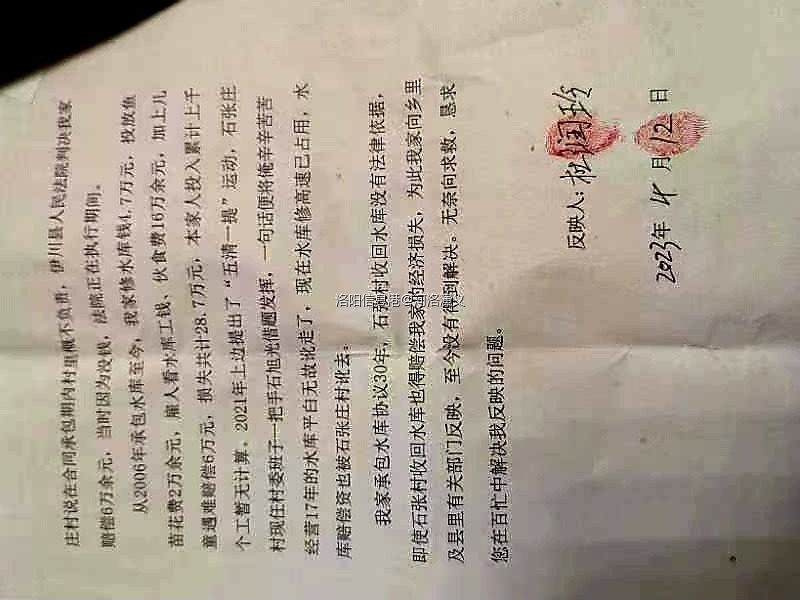 庄村说在合同承包期内村里概不负责，伊川县人民法院判决我家
赔偿6万余元，当时因为没钱，法院正在执行期间。
从2006年承包水库至今，我家修水库钱4.7万元，投放鱼
苗花费2万余元，雇人看水库工钱、伙食费16万余元，加上儿
童遇难赔偿6万元，损失共计28.7万元，本家人投入累计上千
个工暂无计算。2021年上边提出了“五清一提”运动，石张庄
村现任村委班子一把手石旭光借题发挥，一句话便将俺辛辛苦苦
经营17年的水库平白无故讹走了，现在水库修高速已占用，水
库赔偿资也被石张庄村讹去。
我家承包水库协议30年，石张村收回水库没有法律依据，
即使石张村收回水库也得赔偿我家的经济损失，为此我家向乡里
及县里有关部门反映，至今没有得到解决。无奈向求救，恳求
您在百忙中解决我反映的问题。
反映人：杜闰玲
2023年4月12日
洛阳信息港@河洛